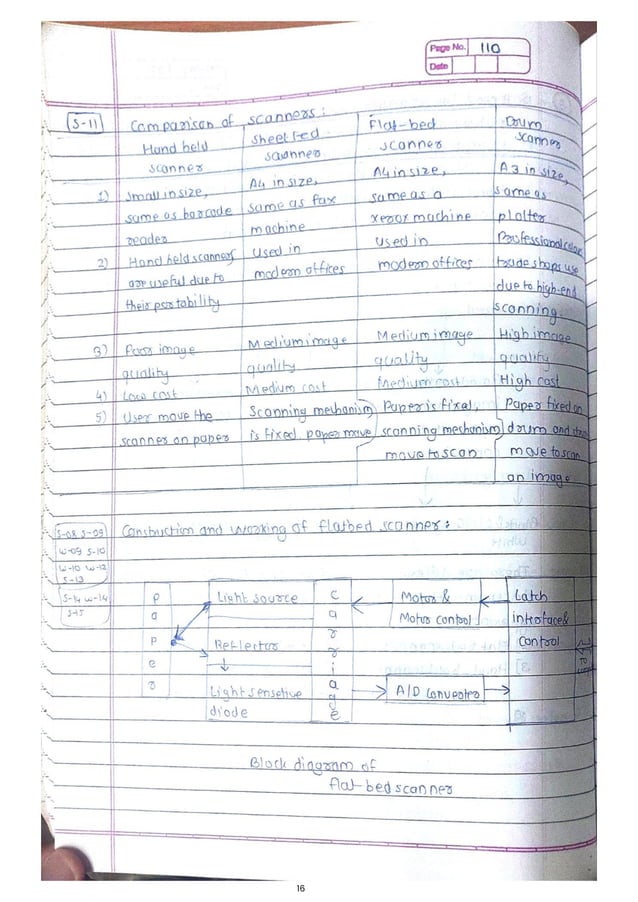 Page No. 110
Date
S-11
Comparison of scanners:
Hand held scanner
Sheet fed scanner
Flat-bed scanner
Drum scanner
1) Small in size, same as barcode reader
A4 in size, same as fax machine
A4 in size, same as a xerox machine
A3 in size, same as plotter
2) Hand held scanners are useful due to their portability
used in modern offices
used in modern offices
Professional colour trade shops use due to high-end scanning.
3) Poor image quality
Medium image quality
Medium image quality
High image quality
4) Low cost
Medium cost
Medium cost
High cost
5) User move the scanner on paper
Scanning mechanism is fixed. paper move
Paper is fixed, scanning mechanism move to scan
Paper fixed on drum and move to scan an image
S-08 S-09
W-09 S-10
W-10 W-12
S-13
S-14 W-14
S-15
Construction and working of flatbed scanner:
Paper
Light source
Reflector
Light sensetive
diode
Carriage
Motor &
Motor control
A/D Conveter
Latch
interface &
control
Block diagram of
flat-bed scanner
16